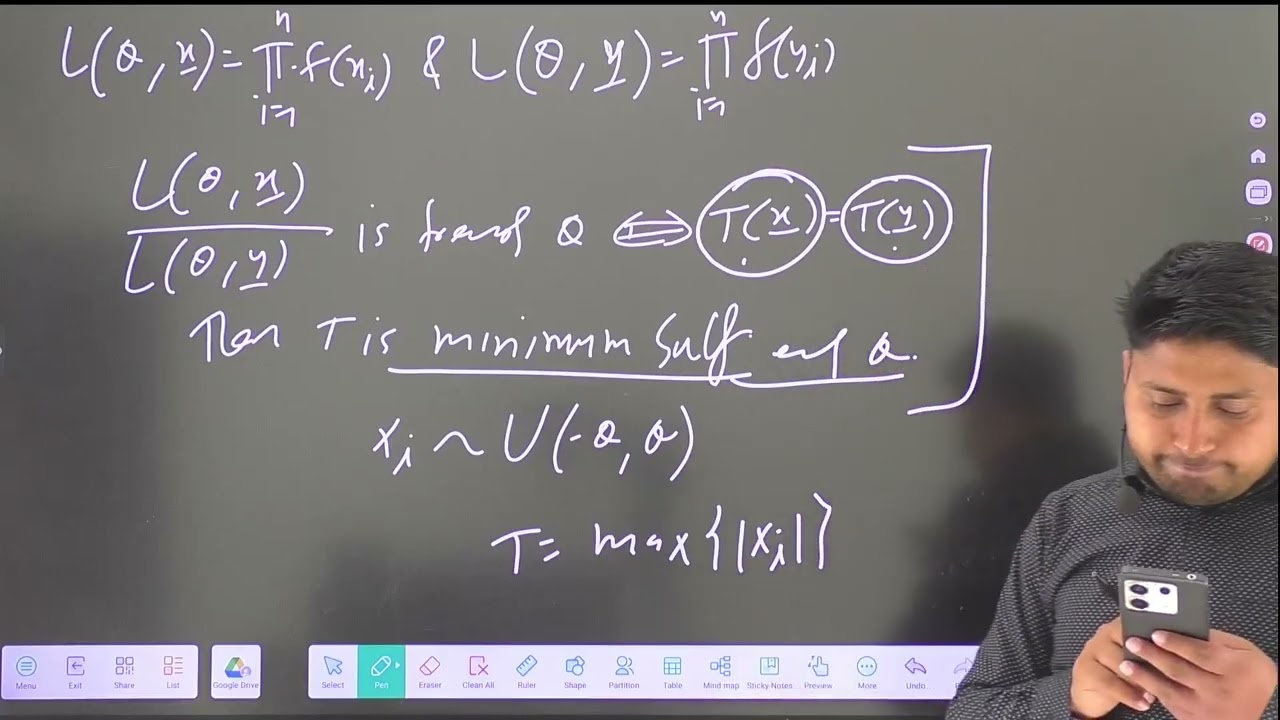 L(θ, x) = ∏ᵢ₌₁ⁿ f(xᵢ) & L(θ, y) = ∏ᵢ₌₁ⁿ f(yᵢ)
L(θ, x) / L(θ, y) is θ ⇔ T(x) = T(y)
Then T is minimum Suff θ.
xᵢ ~ U(-θ, θ)
T = max{|Xᵢ|}
Menu Exit Share List Google Drive Select Pen Eraser Clean All Ruler Shape Partition Table Mind map Sticky-Notes.. Preview More Undo..